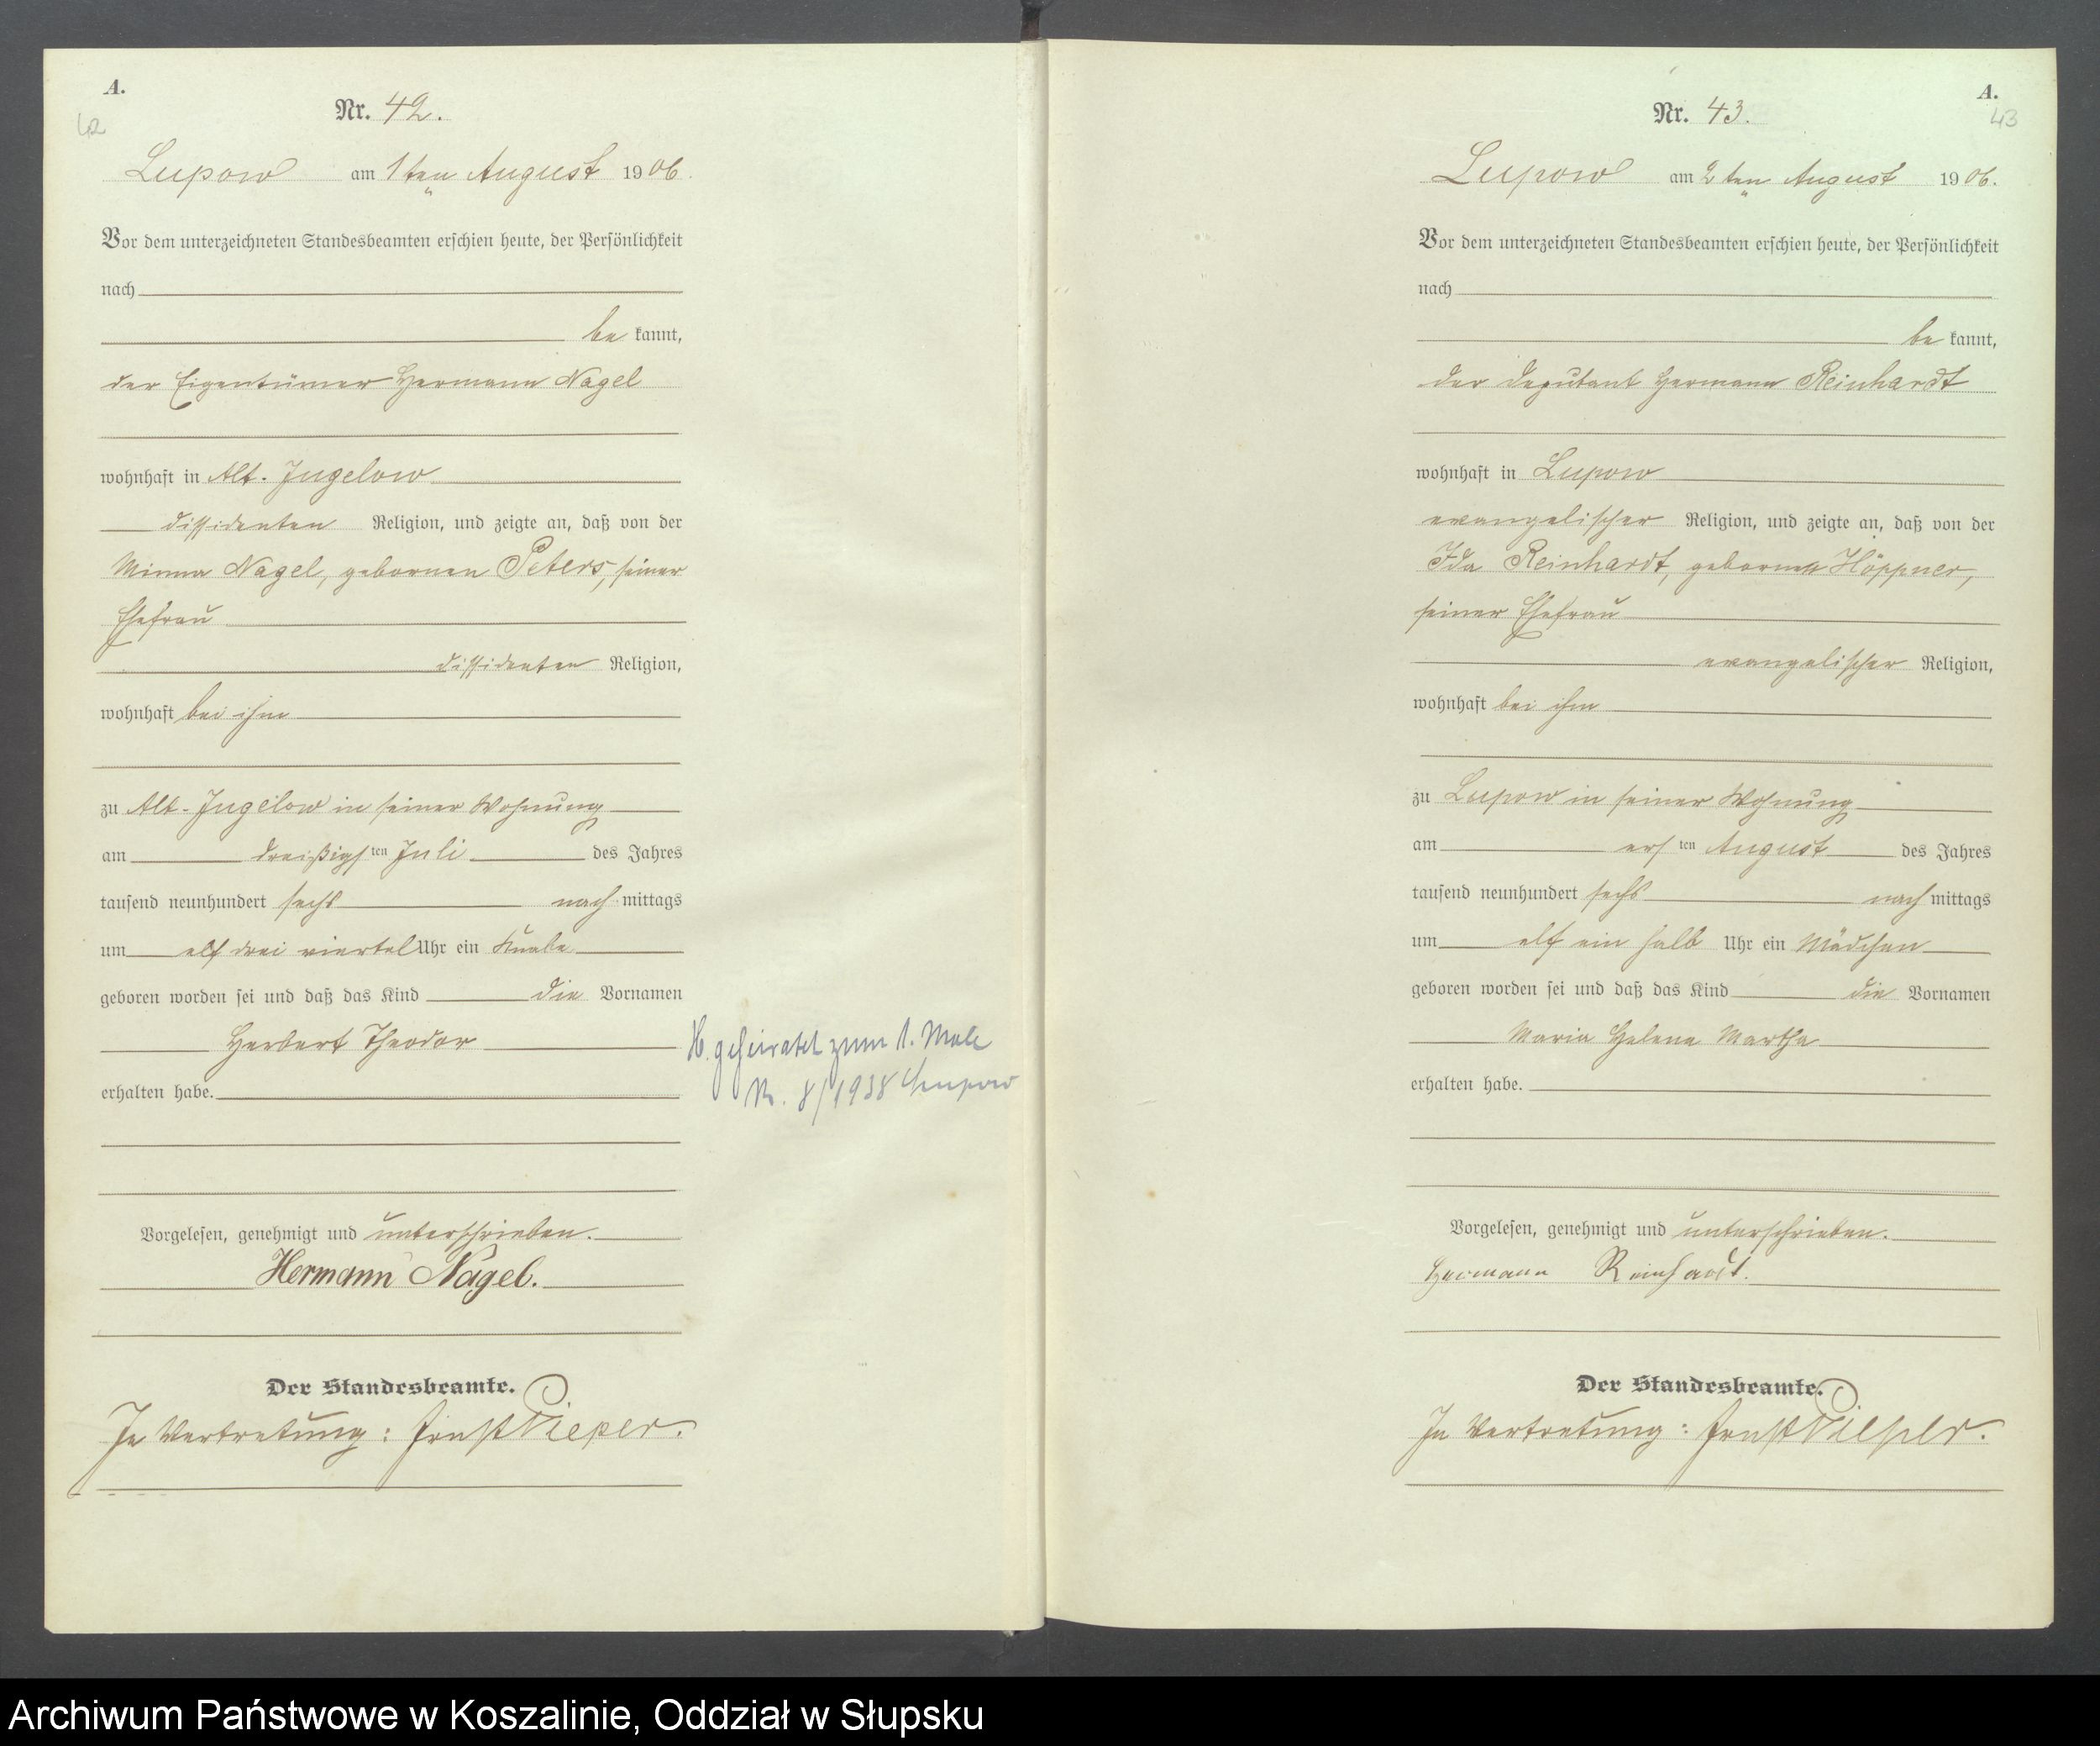 A.
42
Nr. 42.
Lupow am 1ten August 1906.
Vor dem unterzeichneten Standesbeamten erschien heute, der Persönlichkeit
nach
be kannt,
der Eigentümer Hermann Nagel
wohnhaft in Alt-Jugelow
dissidenten Religion, und zeigte an, daß von der
Minna Nagel, gebornen Peters, seiner
Ehefrau
dissidenten Religion,
wohnhaft bei ihm
zu Alt-Jugelow in seiner Wohnung
am dreißigsten Juli des Jahres
tausend neunhundert sechs nachmittags
um elf drei viertel Uhr ein Knabe
geboren worden sei und daß das Kind die Vornamen
Herbert Theodor
erhalten habe.
H. geheiratet zum 1. Male
Nr. 8/1938 Lupow
Vorgelesen, genehmigt und unterschrieben.
Hermann Nagel.
Der Standesbeamte.
In Vertretung: Ernst Pieper.
A.
43
Nr. 43.
Lupow am 2ten August 1906.
Vor dem unterzeichneten Standesbeamten erschien heute, der Persönlichkeit
nach
be kannt,
der Deputant Hermann Reinhardt
wohnhaft in Lupow
evangelischer Religion, und zeigte an, daß von der
Ida Reinhardt, geborene Höppner,
seiner Ehefrau
evangelischer Religion,
wohnhaft bei ihm
zu Lupow in seiner Wohnung
am ersten August des Jahres
tausend neunhundert sechs nachmittags
um elf ein halb Uhr ein Mädchen
geboren worden sei und daß das Kind die Vornamen
Maria Helene Martha
erhalten habe.
Vorgelesen, genehmigt und unterschrieben.
Hermann Reinhardt.
Der Standesbeamte.
In Vertretung: Ernst Pieper.
Archiwum Państwowe w Koszalinie, Oddział w Słupsku